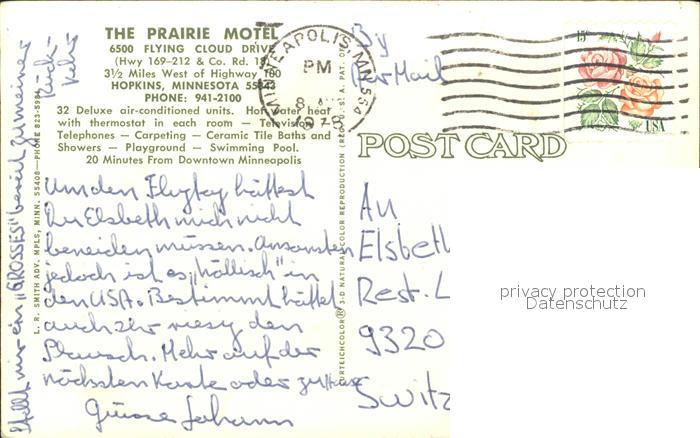 THE PRAIRIE MOTEL
6500 FLYING CLOUD DRIVE
(Hwy 169-212 & Co. Rd. 18)
3½ Miles West of Highway 100
HOPKINS, MINNESOTA 55343
PHONE: 941-2100
32 Deluxe air-conditioned units, Hot water heat
with thermostat in each room — Television
Telephones — Carpeting — Ceramic Tile Baths and
Showers — Playground — Swimming Pool.
20 Minutes From Downtown Minneapolis
Um den Flugtag hättest
Du Elsbeth mich nicht
beneiden müssen. Ansonsten
jedoch ist es „höllisch" in
den USA. Bestimmt hättet
auch Ihr riesig den
Plausch. Mehr auf der
nächsten Karte oder zuhause
Grüsse Johann
Stellt mir ein „GROSSES" bereit zu meiner
Rück-
kehr
L. R. SMITH ADV. MPLS, MINN. 55408—PHONE 823-59
CURTEICHCOLOR® 3-D NATURAL COLOR REPRODUCTION (REG. U.S.A. PAT. OFF.)
MINNEAPOLIS, MN 554
PM
8
1978
15c
USA
By
Air Mail
POST CARD
An
Elsbeth
Rest. L
9320
Switz
privacy protection
Datenschutz